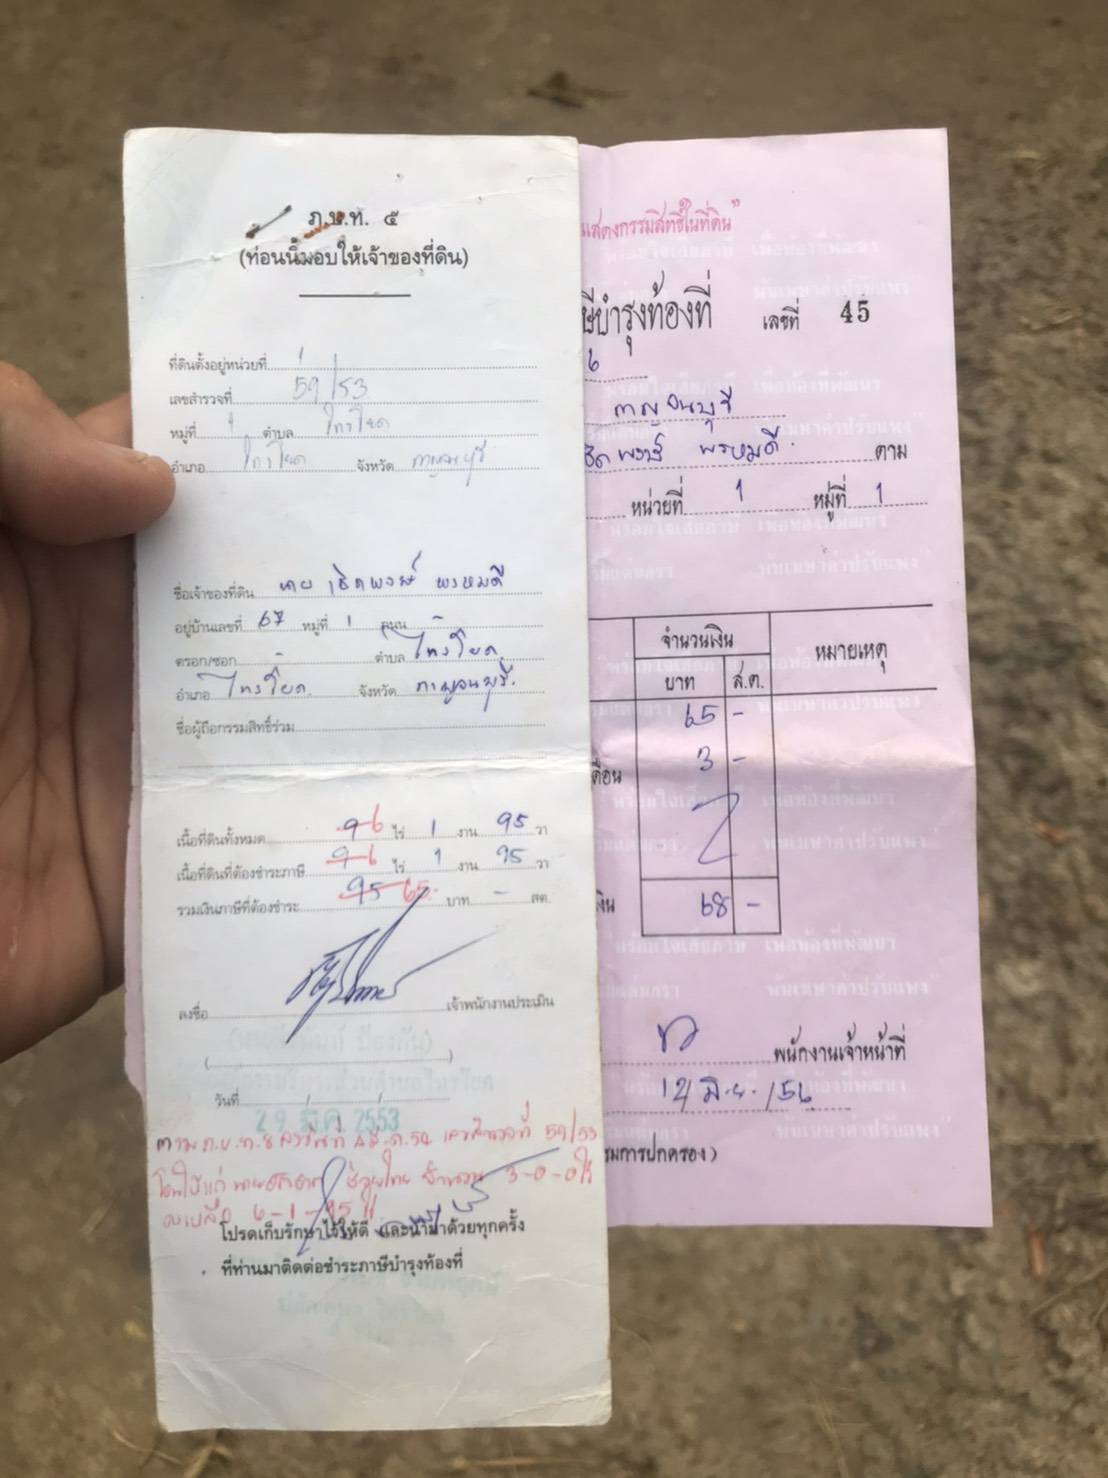 ภ.บ.ท. ๕
(ท่อนนี้มอบให้เจ้าของที่ดิน)
ที่ดินตั้งอยู่หน่วยที่ 1
เลขสำรวจที่ 59/53
หมู่ที่ 1 ตำบล ไทรโยค
อำเภอ ไทรโยค จังหวัด กาญจนบุรี
ชื่อเจ้าของที่ดิน นาย เชิดพงษ์ พรหมดี
อยู่บ้านเลขที่ 67 หมู่ที่ 1 ถนน -
ตรอก/ซอก - ตำบล ไทรโยค
อำเภอ ไทรโยค จังหวัด กาญจนบุรี.
ชื่อผู้ถือกรรมสิทธิ์ร่วม
เนื้อที่ดินทั้งหมด 9 6 ไร่ 1 งาน 95 วา
เนื้อที่ดินที่ต้องชำระภาษี 9 6 ไร่ 1 งาน 95 วา
รวมเงินภาษีที่ต้องชำระ 95 65 บาท - สต.
ลงชื่อ เจ้าพนักงานประเมิน
วันที่
29 2553
ตาม ภ.บ.ท.8 เลขสำรวจที่ 59/53
โอนให้แก่ นาย จำนวน 3-0-0 ไร่
คงเหลือ 6-1-95
โปรดเก็บรักษาไว้ให้ดี และนำมาด้วยทุกครั้ง
ที่ท่านมาติดต่อชำระภาษีบำรุงท้องที่
แสดงกรรมสิทธิ์ในที่ดิน"
ษีบำรุงท้องที่ เลขที่ 45
กาญจนบุรี
ชิดพงษ์ พรหมดี. ตาม
หน่วยที่ 1 หมู่ที่ 1
จำนวนเงิน หมายเหตุ
บาท ส.ต.
65 -
ดือน 3 -
งิน 68 -
พนักงานเจ้าหน้าที่
12/ มิ.ย. /56
รมการปกครอง)